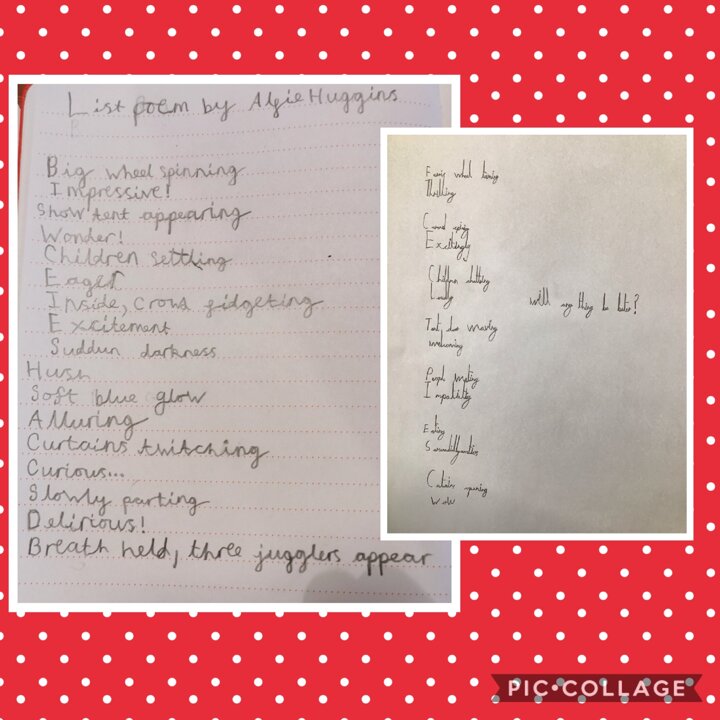 List poem by Algie Huggins
Big wheel spinning
Impressive!
Show tent appearing
Wonder!
Children settling
Eager
Inside, crowd fidgeting
Excitement
Suddun darkness
Hush
Soft blue glow
Alluring
Curtains twitching
Curious...
Slowly parting
Delirious!
Breath held, three jugglers appear
wheel
Thrilling
Excitingly
Children chattering
Loudly
welcoming
Impatiently
Eating
Curtain opening
Wow
will any thing be better?
PIC•COLLAGE